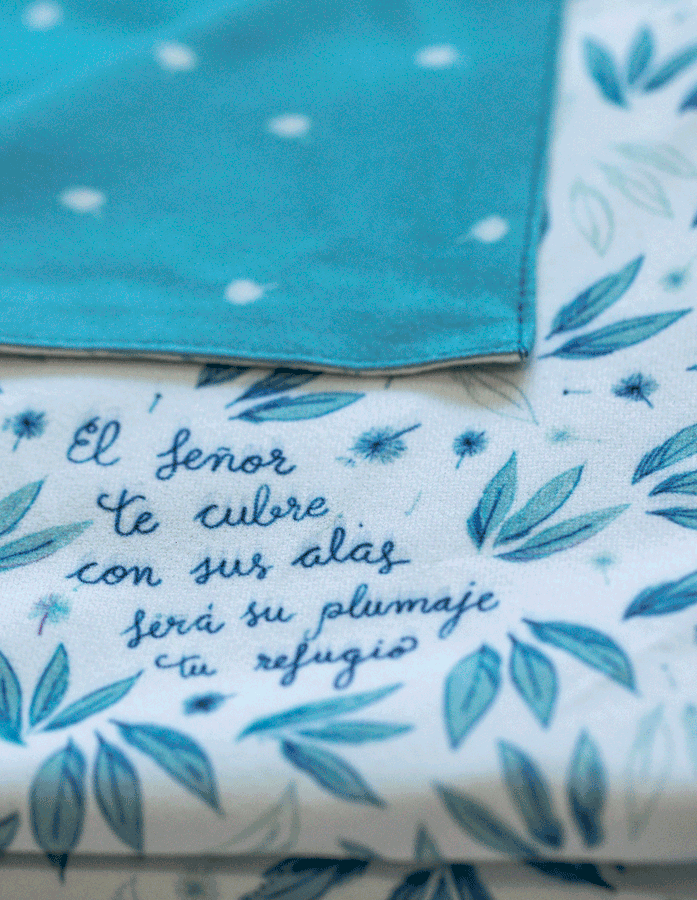 El Señor
te cubre
con sus alas
será su plumaje
tu refugio